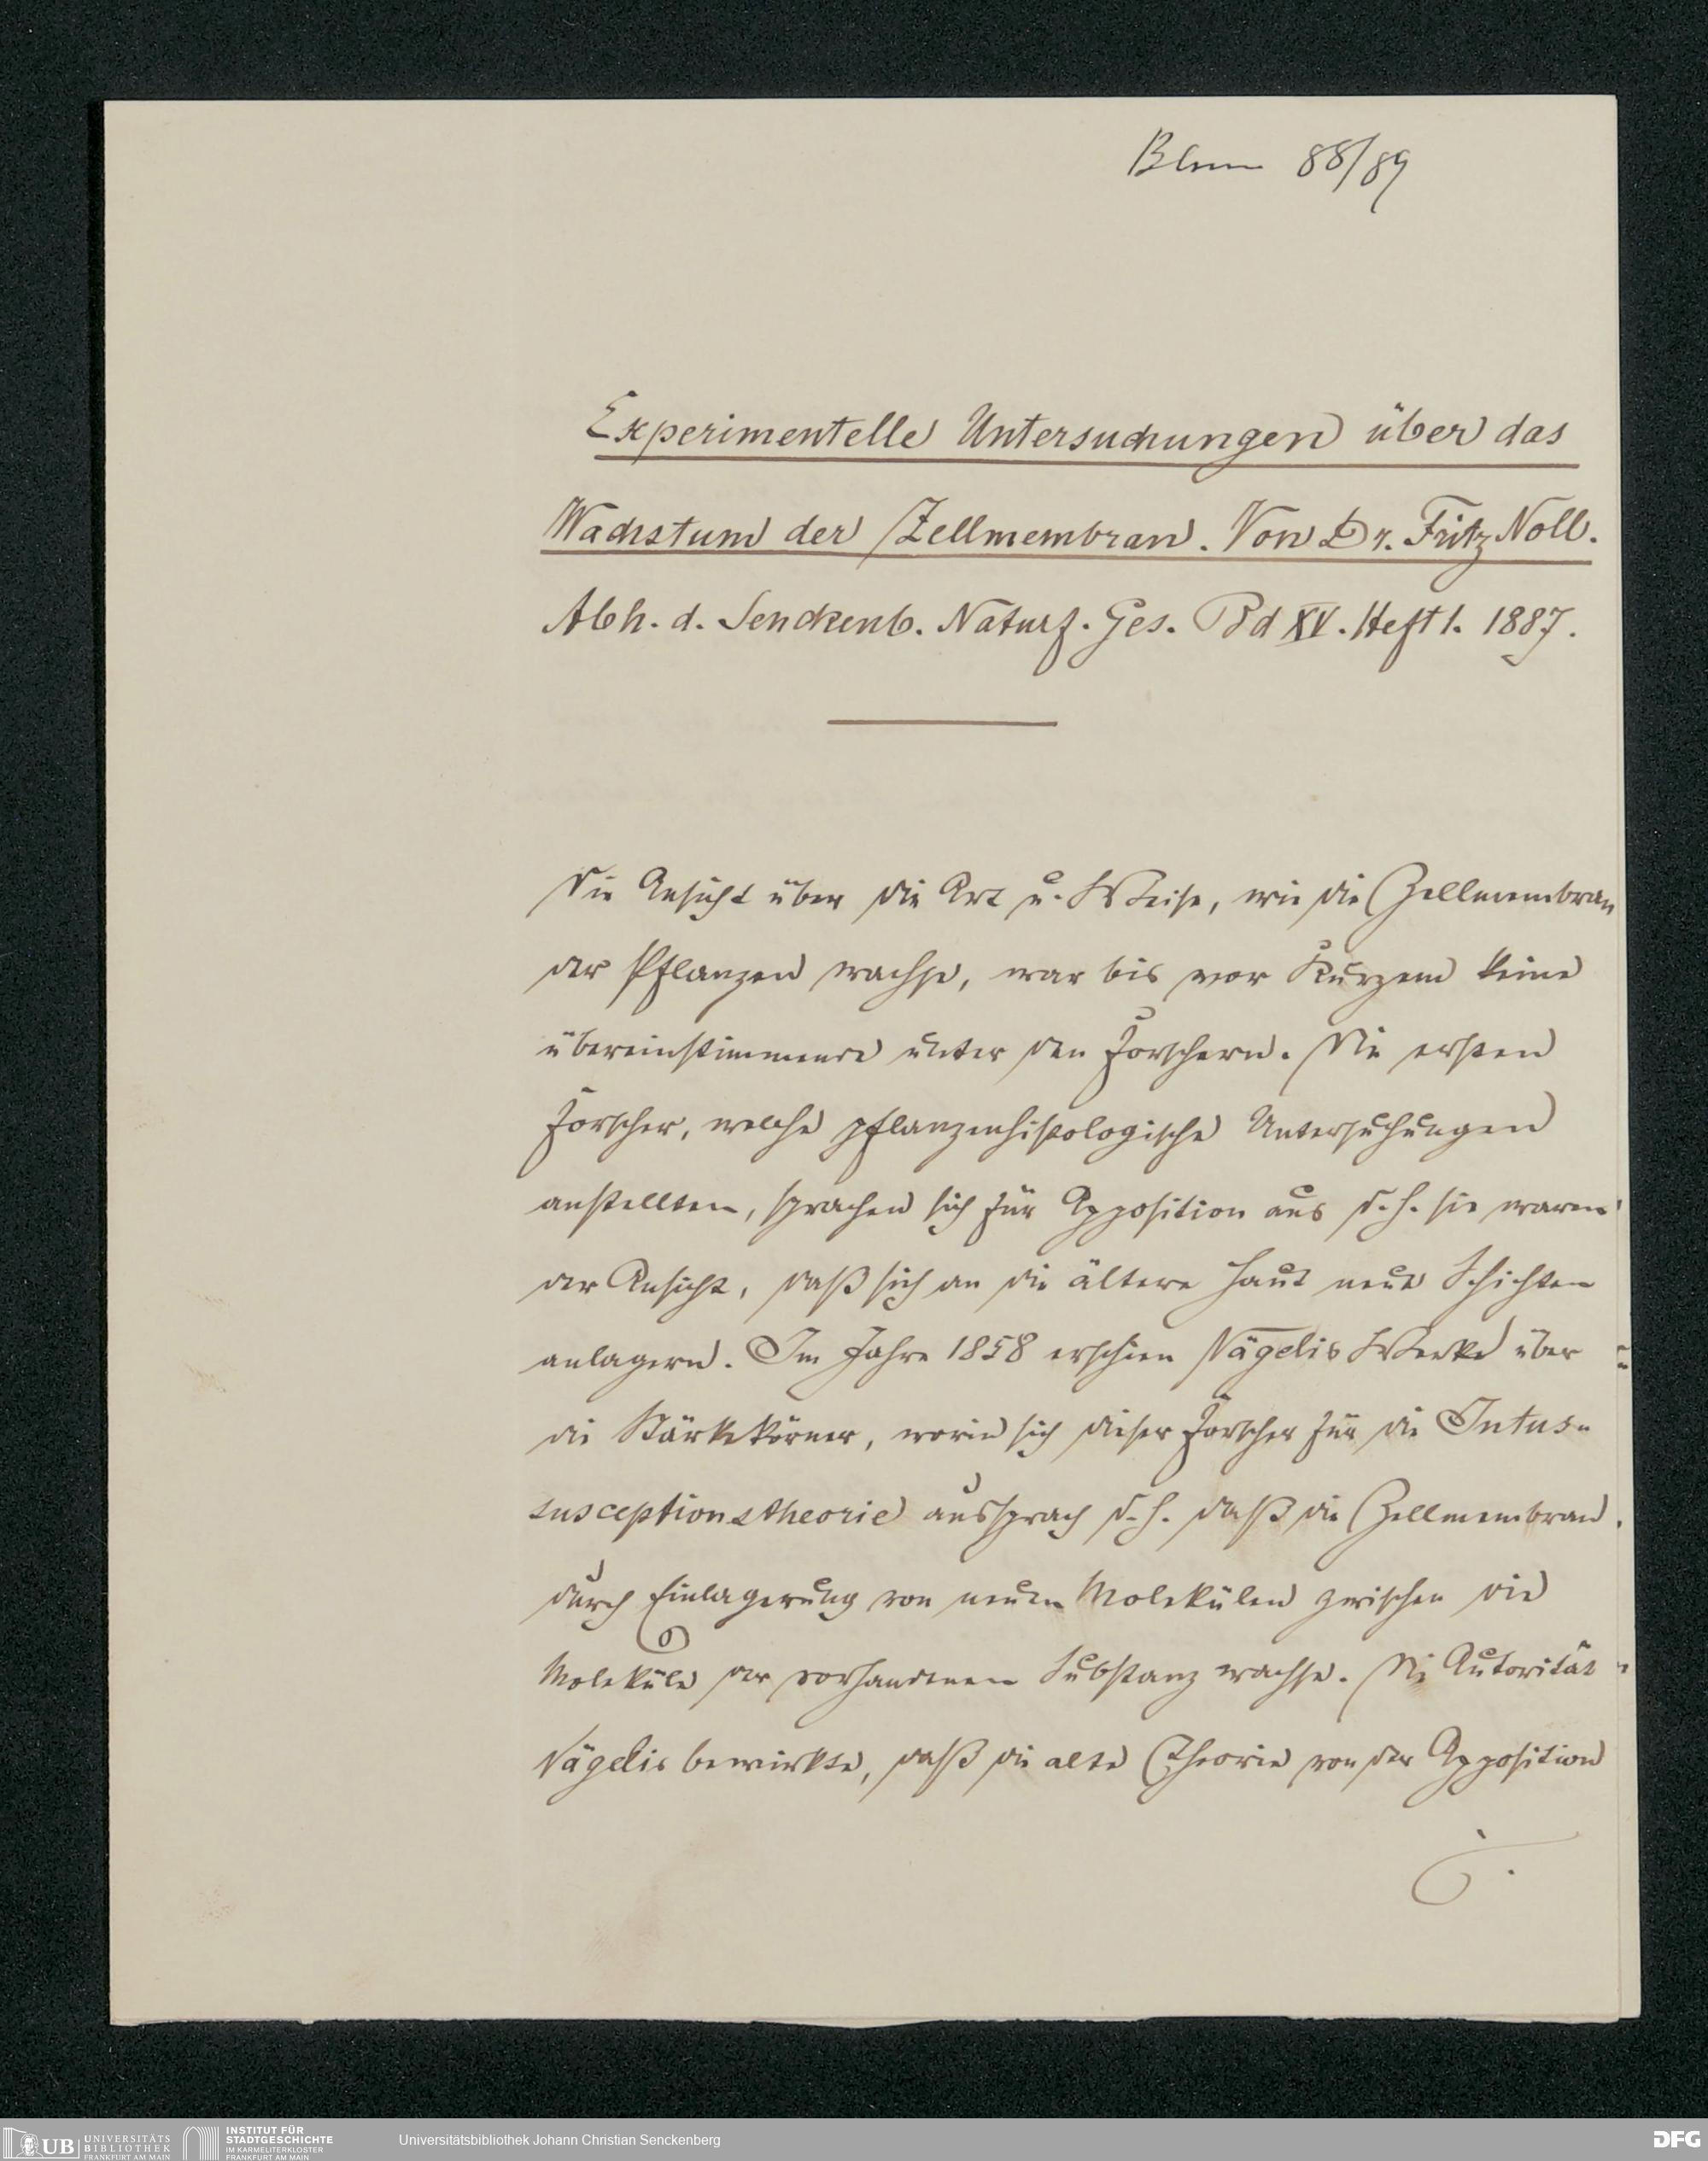 Blum 88/89
Experimentelle Untersuchungen über das
Wachstum der Zellmembran. Von Dr. Fritz Noll.
Abh. d. Senckenb. Naturf. Ges. Bd XV. Heft 1. 1887.
Die Ansicht über die Art u. Weise, wie die Zellmembran
der Pflanzen wachse, war bis vor Kurzem keine
übereinstimmende unter den Forschern. Die ersten
Forscher, welche pflanzenhistologische Untersuchungen
anstellten, sprachen sich für Apposition aus d. h. sie waren
der Ansicht, daß sich an die ältere Haut neue Schichten
anlagern. Im Jahre 1858 erschien Nägelis Werke über
die Stärkekörner, worin sich dieser Forscher für die Intus-
susceptionstheorie aussprach d. h. daß die Zellmembran
durch Einlagerung von neuen Molekülen zwischen die
Moleküle der vorhandenen Substanz wachse. Die Autorität
Nägelis bewirkte, daß die alte Theorie von der Apposition
UB UNIVERSITÄTS
BIBLIOTHEK
FRANKFURT AM MAIN
INSTITUT FÜR
STADTGESCHICHTE
IM KARMELITERKLOSTER
FRANKFURT AM MAIN
Universitätsbibliothek Johann Christian Senckenberg
DFG